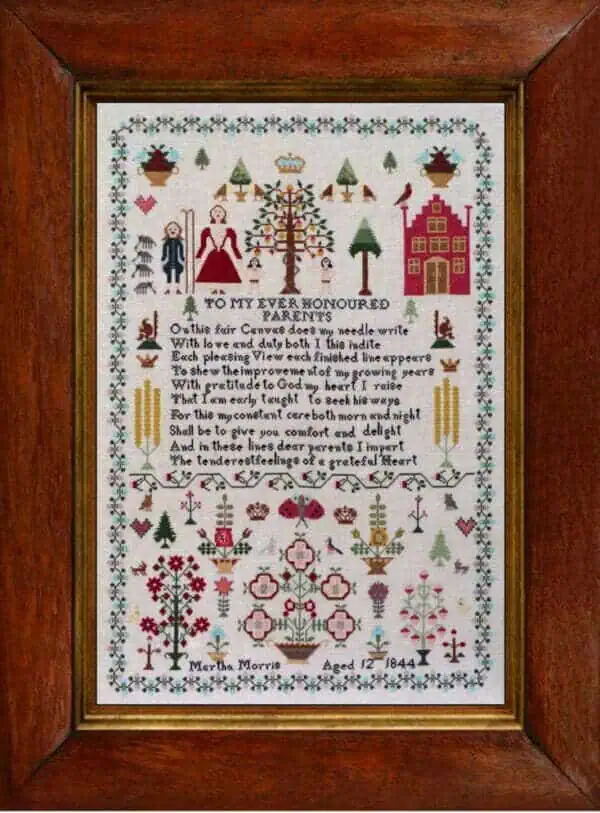 TO MY EVER HONOURED
PARENTS
On this fair Canvas does my needle write
With love and duty both I this indite
Each pleasing View each finished line appears
To shew the improvement of my growing years
With gratitude to God my heart I raise
That I am early taught to seek his ways
For this my constant care both morn and night
Shall be to give you comfort and delight
And in these lines dear parents I impart
The tenderest feelings of a grateful Heart
Martha Morris Aged 12 1844